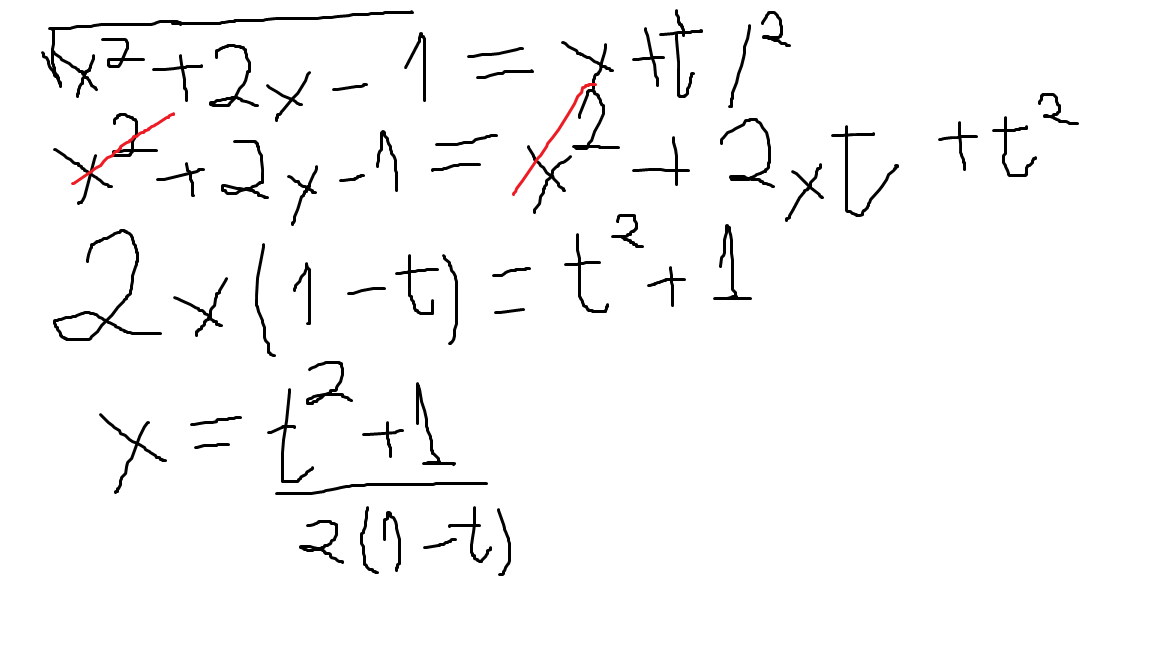 √x²+2x-1 = x+t /²
x²+2x-1 = x²+2xt +t²
2x(1-t) = t²+1
x = t²+1
2(1-t)